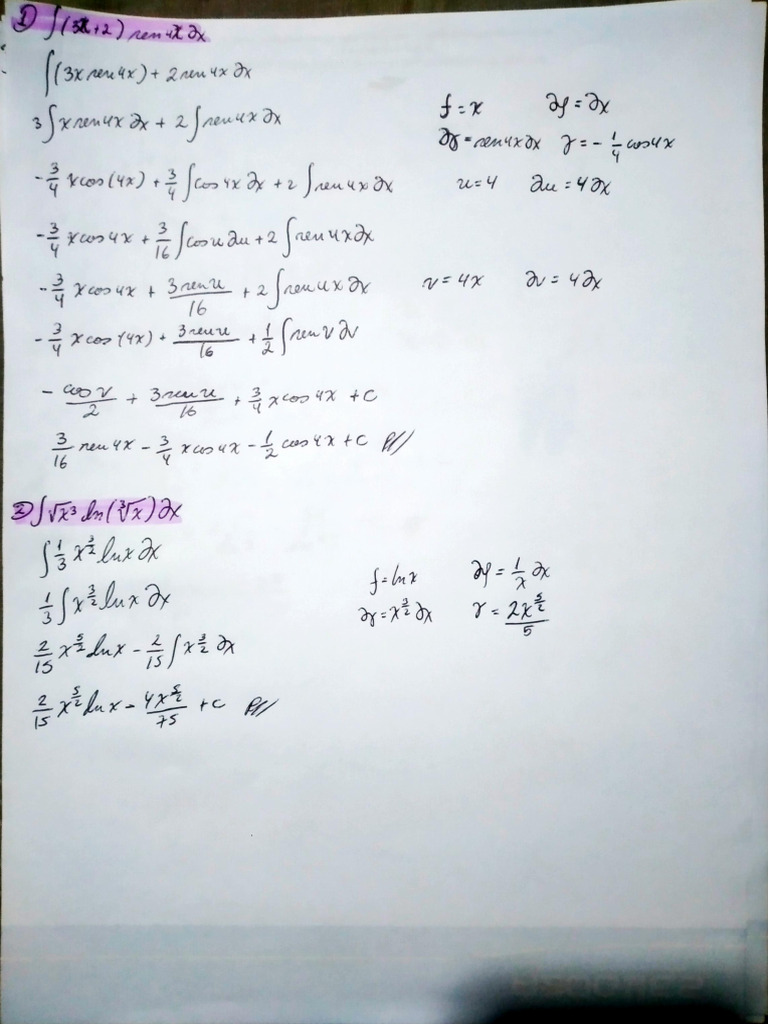 1) ∫(3x+2) sen 4x ∂x
∫(3x sen 4x) + 2 sen 4x ∂x
3∫x sen 4x ∂x + 2∫sen 4x ∂x
f = x ∂f = ∂x
∂g = sen 4x ∂x g = -1/4 cos 4x
-3/4 x cos(4x) + 3/4 ∫cos 4x ∂x + 2∫sen 4x ∂x
u = 4 ∂u = 4∂x
-3/4 x cos 4x + 3/16 ∫cos u ∂u + 2∫sen 4x ∂x
-3/4 x cos 4x + 3 sen u/16 + 2∫sen 4x ∂x
v = 4x ∂v = 4∂x
-3/4 x cos(4x) + 3 sen u/16 + 1/2 ∫sen v ∂v
-cos v/2 + 3 sen u/16 + 3/4 x cos 4x + c
3/16 sen 4x - 3/4 x cos 4x - 1/2 cos 4x + c
2) ∫√x³ ln(∛x) ∂x
∫1/3 x^(3/2) ln x ∂x
1/3 ∫x^(3/2) ln x ∂x
f = ln x ∂f = 1/x ∂x
∂g = x^(3/2) ∂x g = 2x^(5/2)/5
2/15 x^(5/2) ln x - 2/15 ∫x^(3/2) ∂x
2/15 x^(5/2) ln x - 4x^(5/2)/75 + c